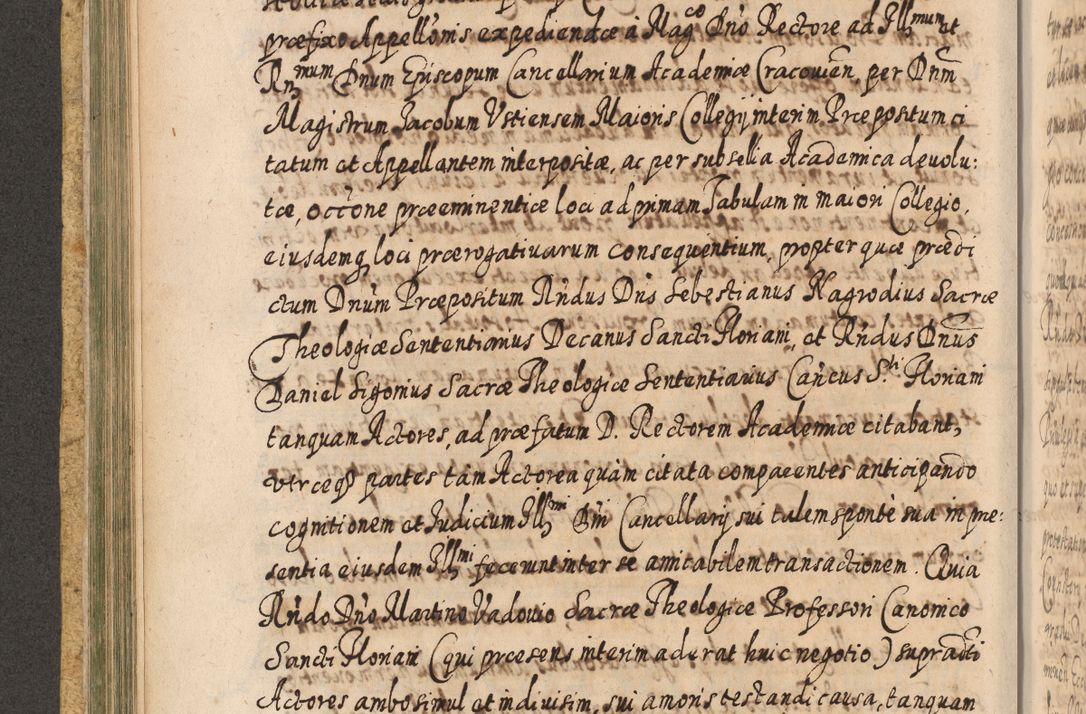 præfixo Appellõnis expediendæ à Mag^co Dño Rectore ad Ill^mum et
Rñ^mum Dnum Episcopum Cancellarium Academiæ Cracouien, per Dnm̃
Magistrum Jacobum Vstiensem Maioris Collegij interim Præpositum ci
tatum et Appellantem interpositæ, ac per subsellia Academica deuolu:
tæ, occõne præeminentiæ loci ad primam Tabulam in maiori Collegio,
eiusdemq loci prærogatiuarum consequentium, propter quæ prædi
ctum Dnum Præpositum Rñdus Dñs Sebestianus Nagrodius Sacræ
Theologiæ Sententiarius Decanus Sancti Floriani, et Rñdus Dnus
Daniel Sigonius Sacræ Theologiæ Sententiarius Cañcus S^ti Floriani
tanquam Actores, ad præfatum D. Rectorem Academiæ citabant,
partes tam Actorea quàm citata comparentes anticipando
cognitionem et Judicium Ill^mi Dñi Cancellarij sui talem spontè sua in præ:
sentia eiusdem Ill^mi fecerunt inter se amicabilem transactionem. Quia
Rñdo Dño Martino Vadouio Sacræ Theologiæ Professori Canonico
Sancti Floriani (qui præsens interim aderat huic negotio) supradcti
Actores ambo simul et indiuisim, sui amoris testandi causa, tanquam